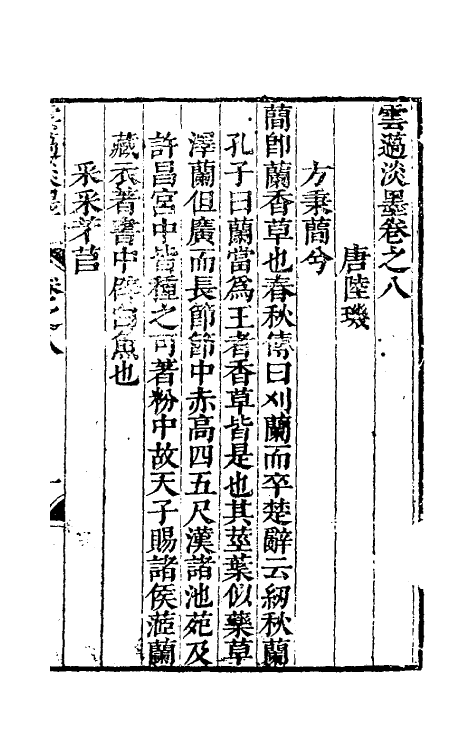 雲薖淡墨卷之八
唐陸璣
方秉蕑兮
蕑卽蘭香草也春秋傳曰刈蘭而卒楚辭云紉秋蘭
孔子曰蘭當為王者香草皆是也其莖葉似藥草
澤蘭但廣而長節節中赤高四五尺漢諸池苑及
許昌宮中皆種之可著粉中故天子賜諸侯茝蘭
藏衣著書中辟白魚也
采采芣苢
卷之八